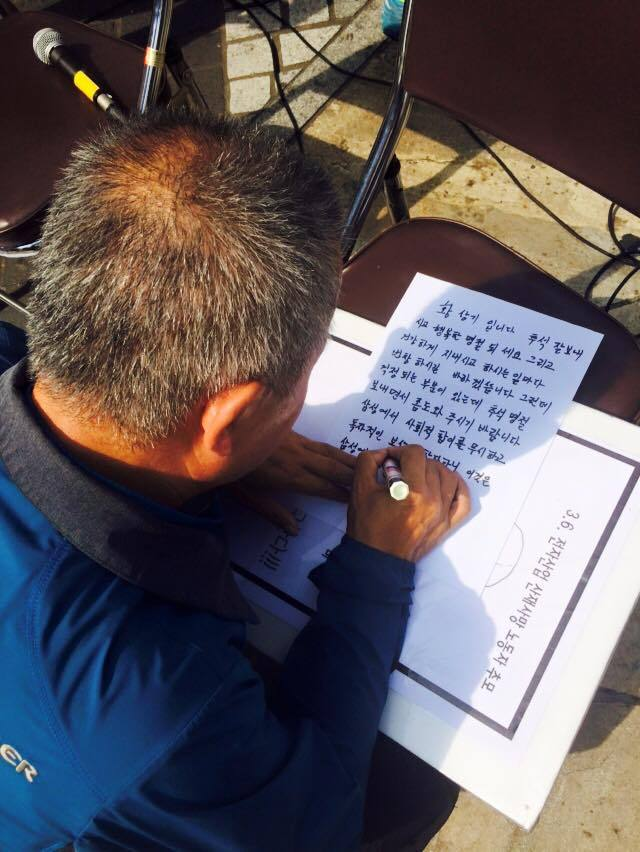 황 상기 입니다 추석 잘보내
시고 행복한 명절 되세요 그리고
건강하게 지내시고 하시는 일마다
번창 하시길 바라겠습니다 그런데
걱정 되는 부분이 있는데 추석 명절
보내면서 홍도와 주시기 바랍니다
삼성에서 사회적 합의를 무시하고
독자적인 보상
삼성에 이것은
3.6. 전자산업 산재사망 노동자 추모
ER